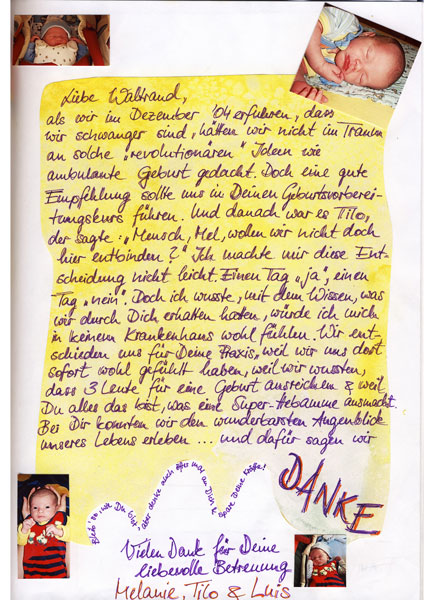 Liebe Waltraud,
als wir im Dezember '04 erfuhren, dass
wir schwanger sind, hätten wir nicht im Traum
an solche „revolutionären" Ideen wie
ambulante Geburt gedacht. Doch eine gute
Empfehlung sollte uns in Deinen Geburtsvorberei-
tungskurs führen. Und danach war es Tilo,
der sagte: „Mensch, Mel, wollen wir nicht doch
hier entbinden?" Ich machte mir diese Ent-
scheidung nicht leicht. Einen Tag „ja", einen
Tag „nein". Doch ich wusste, mit dem Wissen, was
wir durch Dich erhalten haben, würde ich mich
in keinem Krankenhaus wohl fühlen. Wir ent-
schieden uns für Deine Praxis, weil wir uns dort
sofort wohl gefühlt haben, weil wir wussten,
dass 3 Leute für eine Geburt ausreichen & weil
Du alles das hast, was eine Super-Hebamme ausmacht.
Bei Dir konnten wir den wunderbarsten Augenblick
unseres Lebens erleben ... und dafür sagen wir
DANKE
Bleib' so, wie Du bist, aber denke auch öfter mal an Dich & spare Deine Kräfte!
Vielen Dank für Deine
liebevolle Betreuung
Melanie, Tilo & Luis